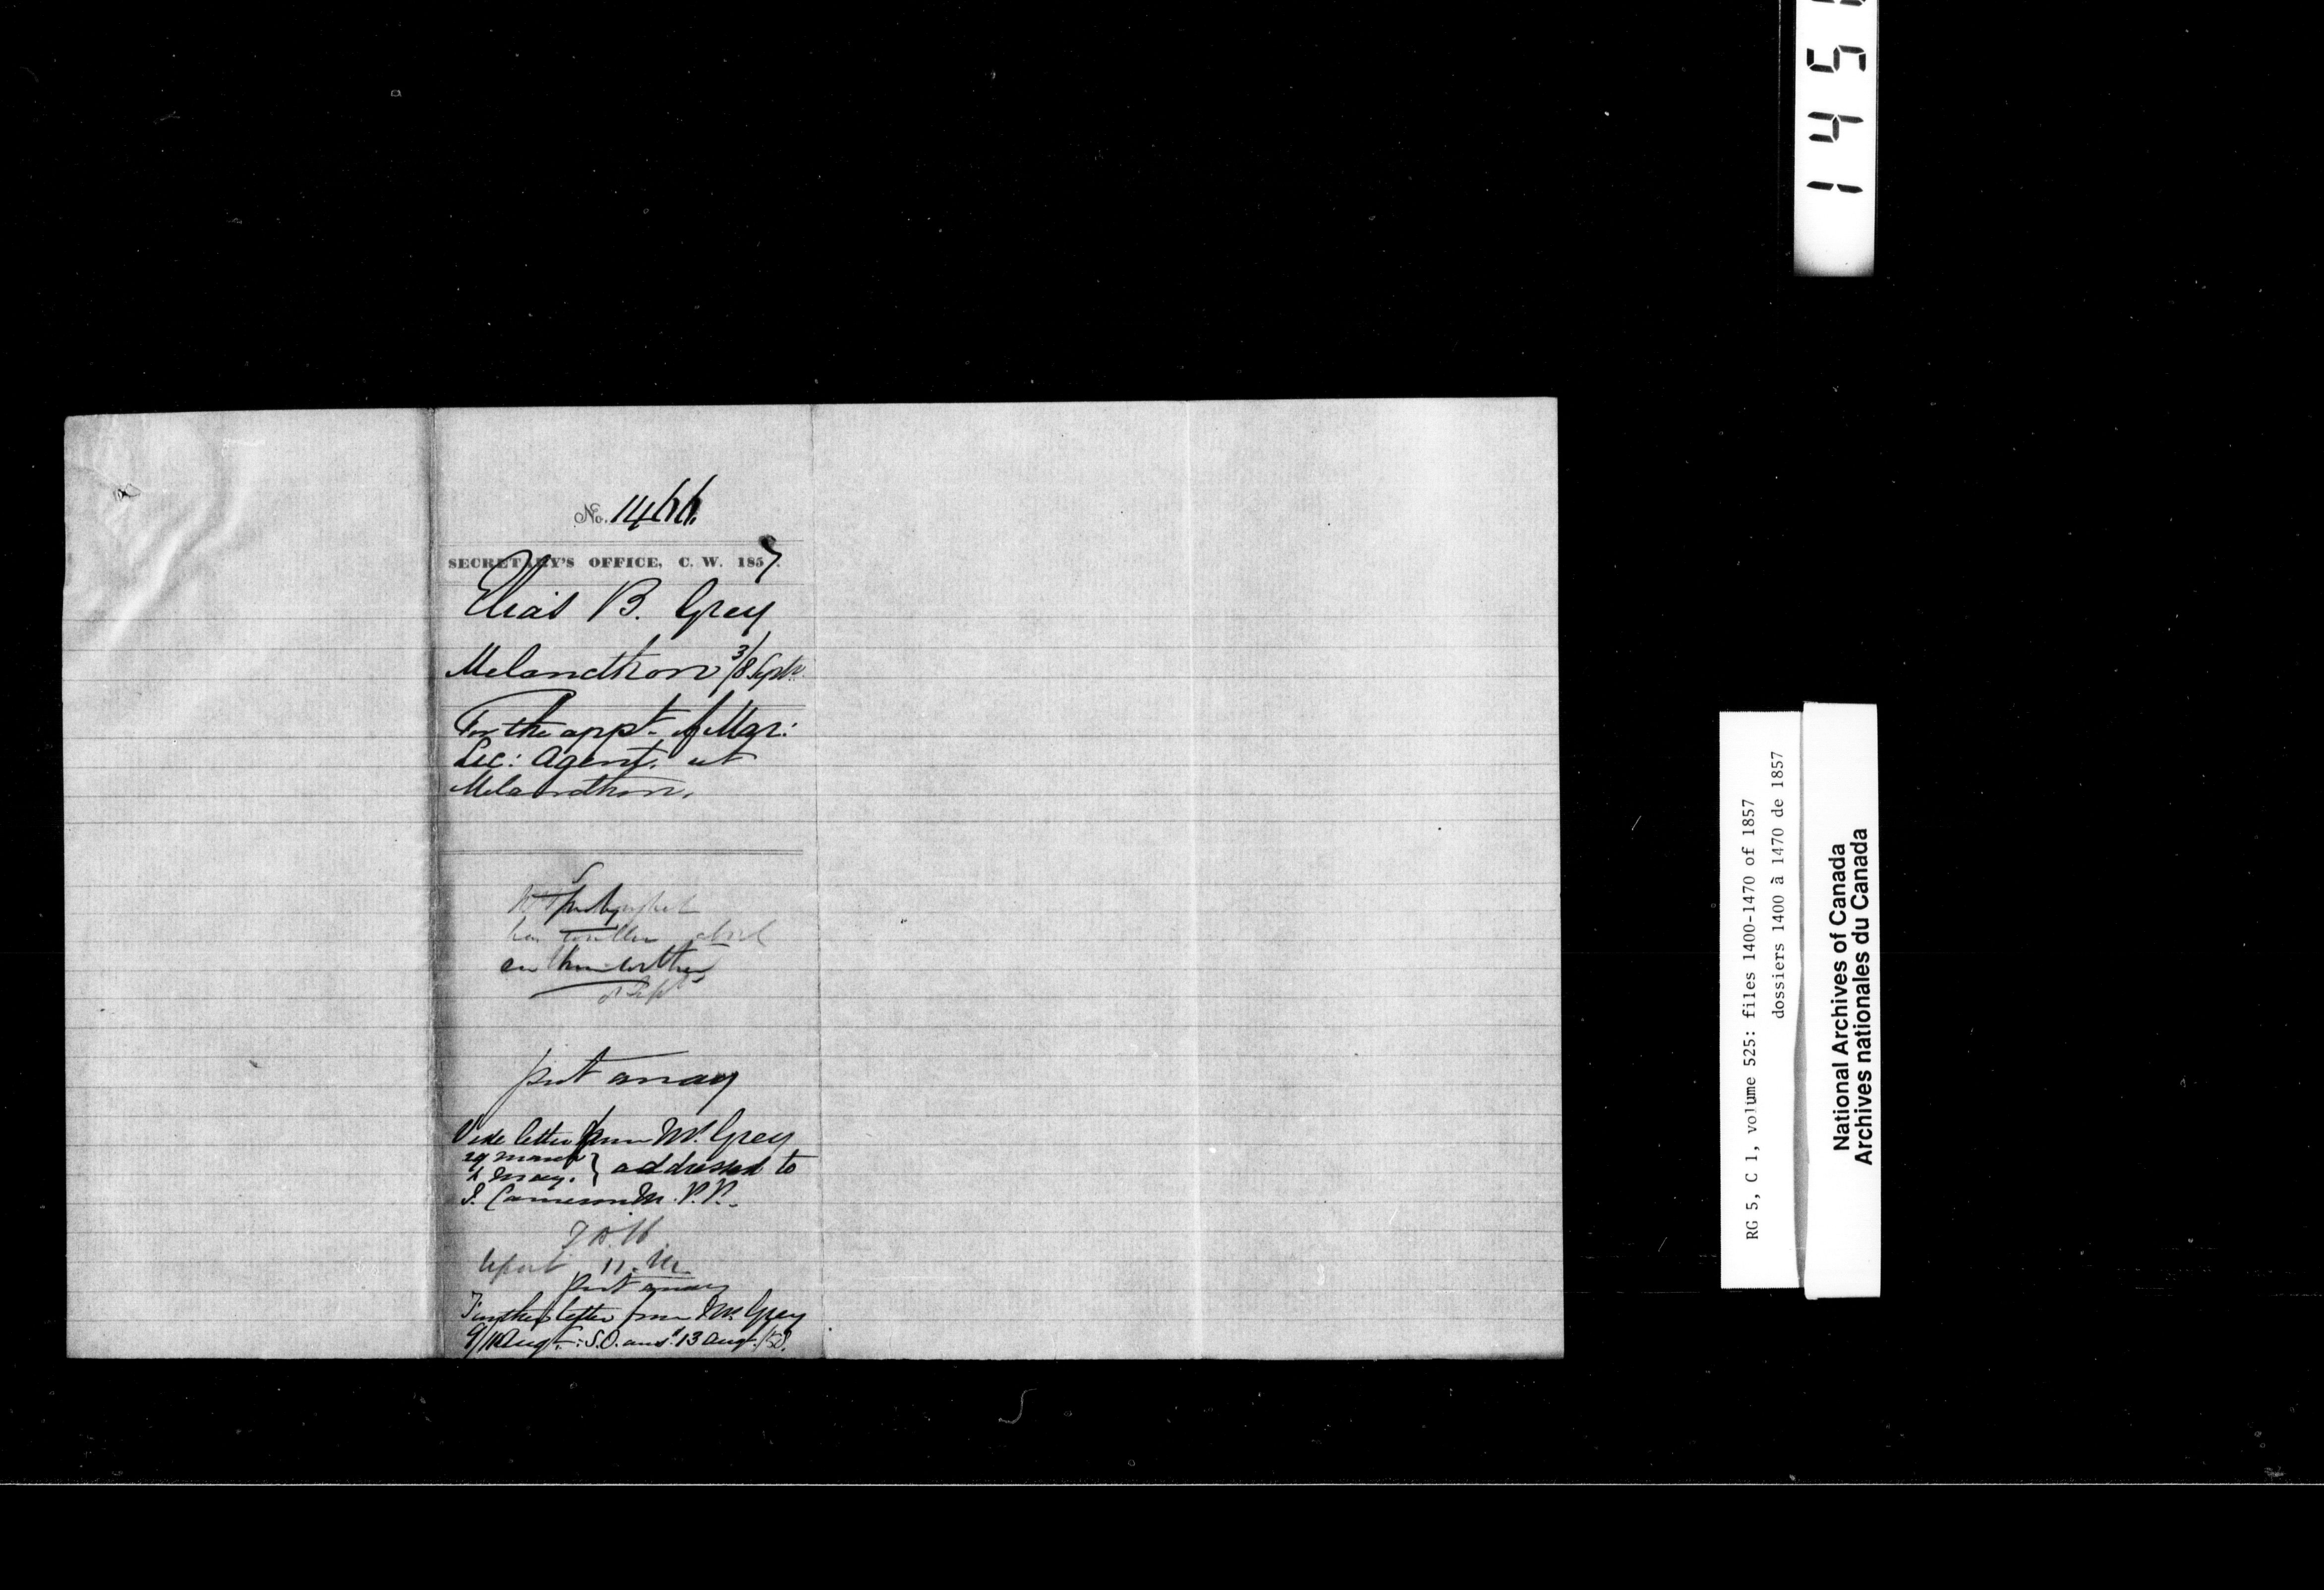 No. 1466.
SECRETARY'S OFFICE, C. W. 1857.
Elias B. Grey
Melancthon 3/8 Septr.
For the appt. of Mar:
Lic: Agent. at
Melancthon.
put away
Vide letter from Mr. Grey
29 March
4 May. } addressed to
Cameron M. P. P.
put away
Further letter from Mr. Grey
9/11 Augt.: S.O. ansd. 13 Augt. /58.
145
RG 5, C 1, volume 525: files 1400-1470 of 1857
dossiers 1400 à 1470 de 1857
National Archives of Canada
Archives nationales du Canada